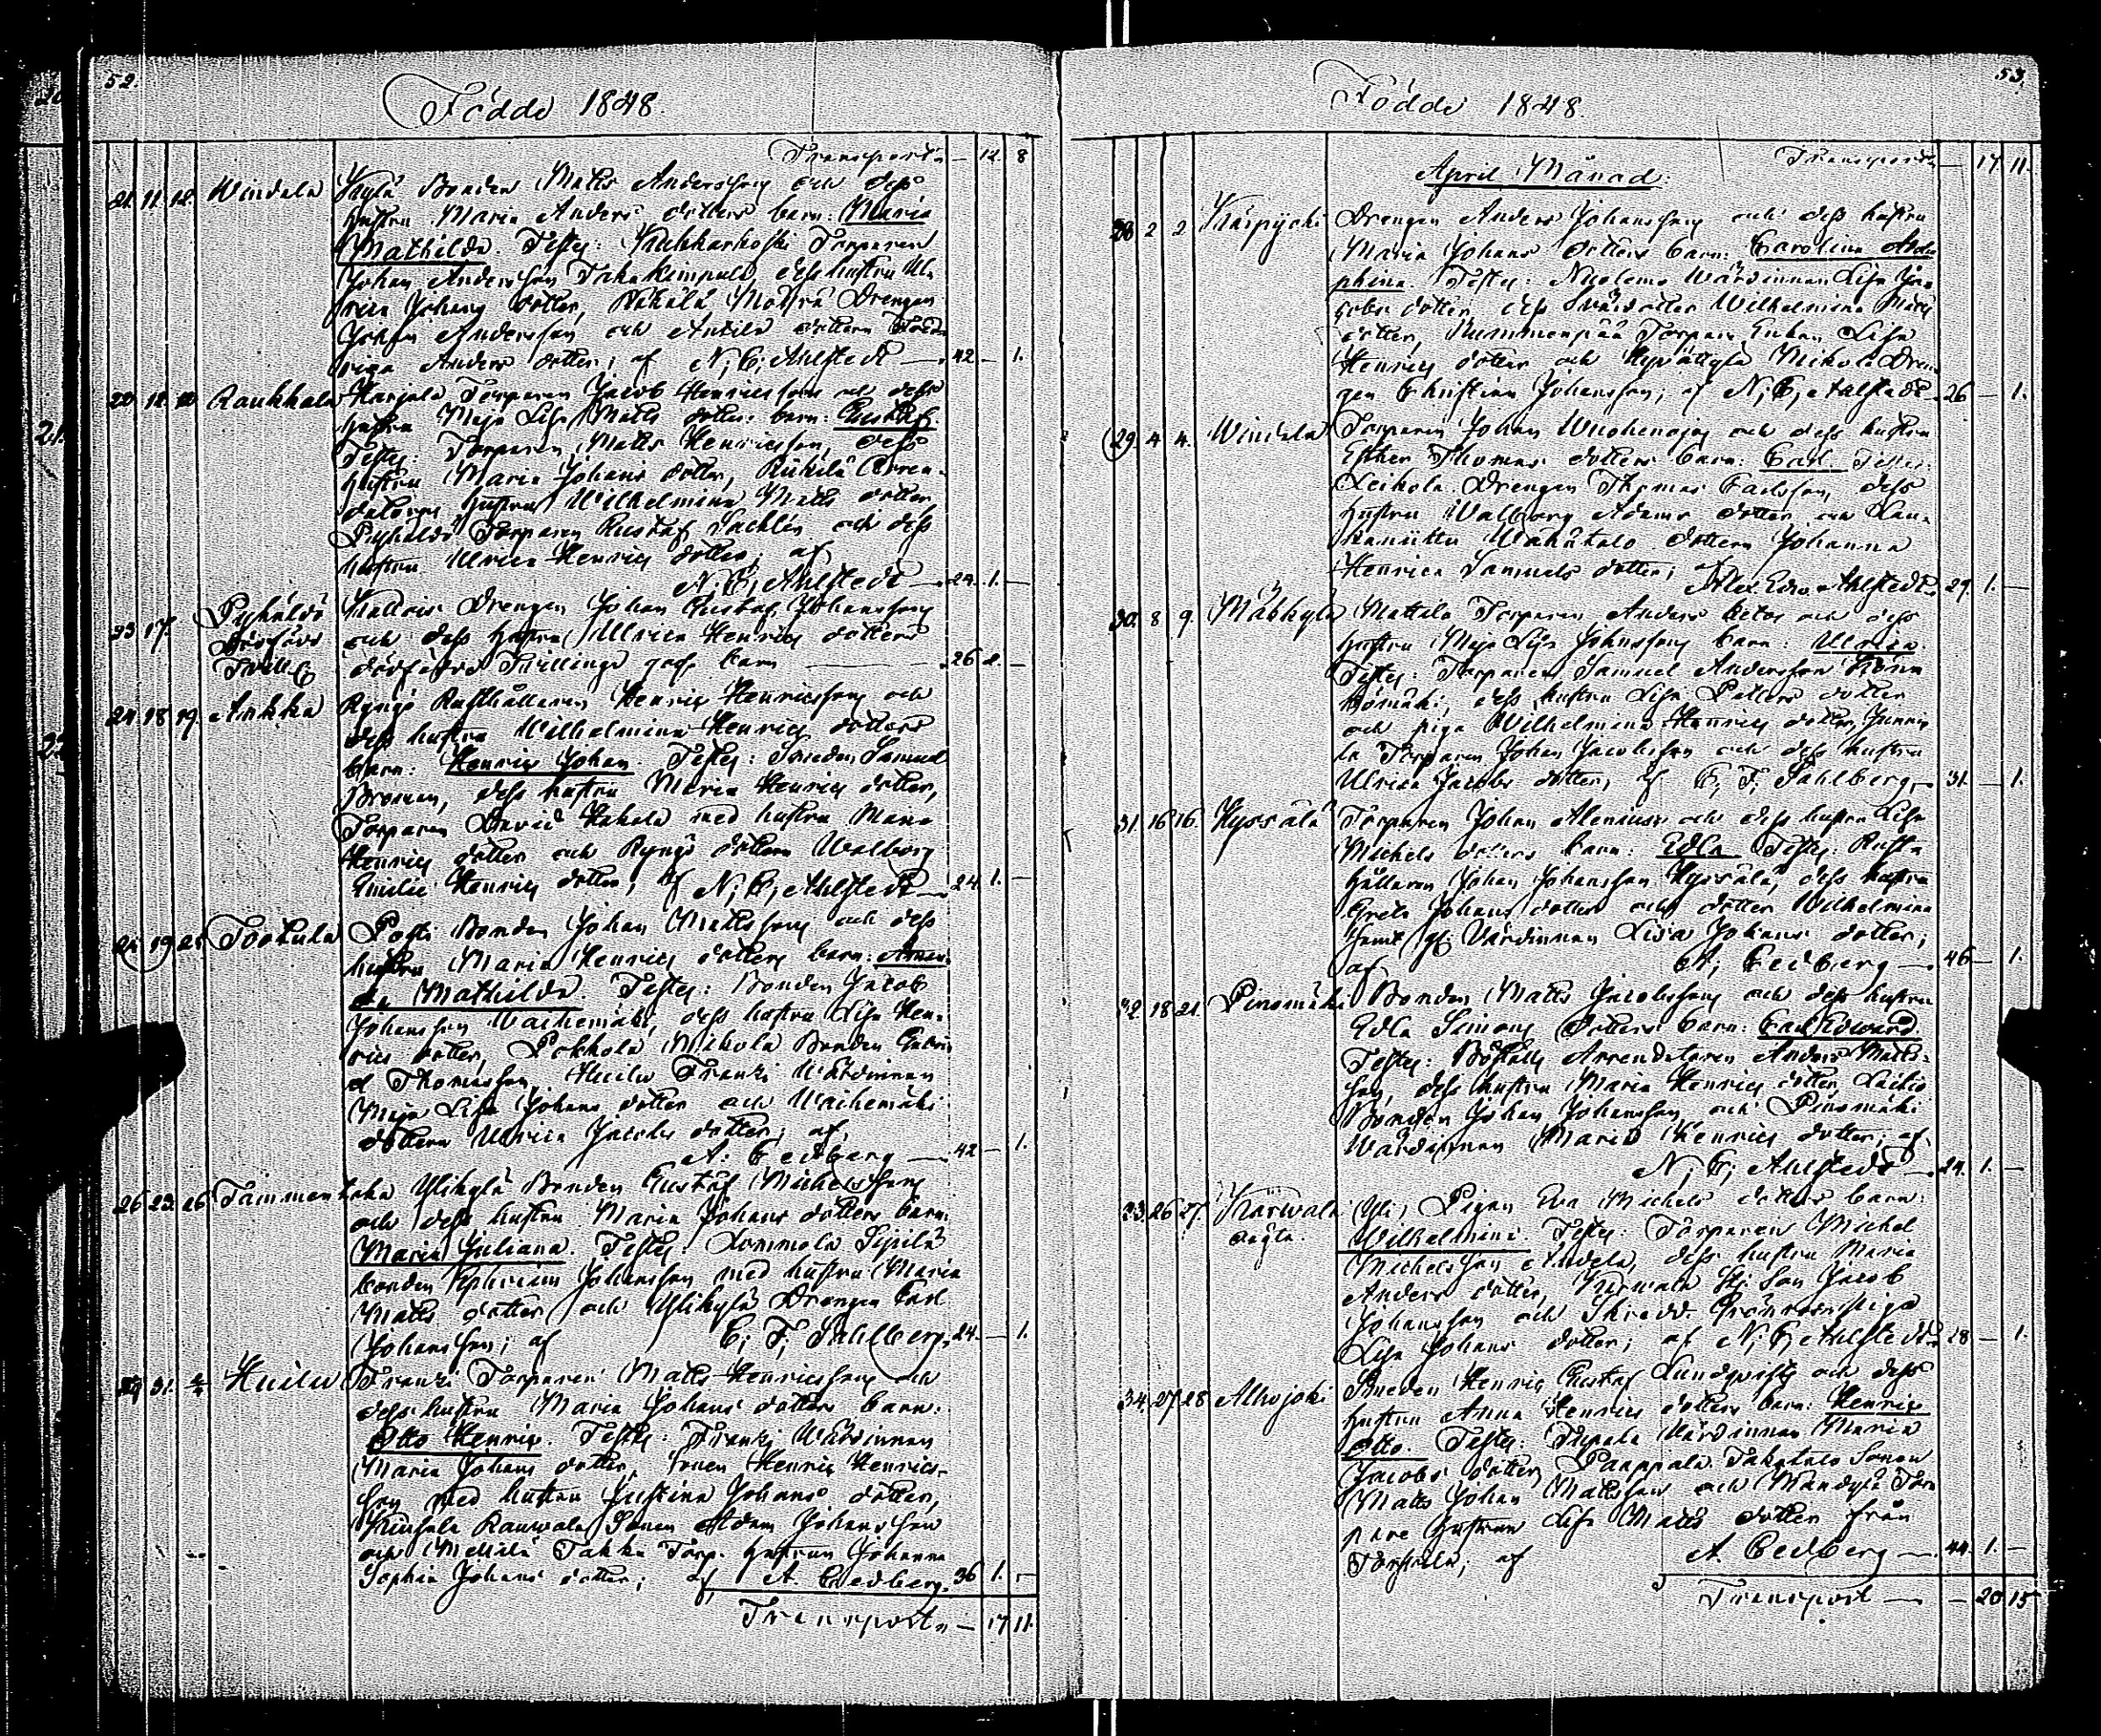 52.
Födde 1848.
Transport — 12. 8
21. 11. 12. Windala Kylä Bonden Matts Andersson och dess
hustru Maria Anders dotters barn: Maria
Mathilda. Testes: Kuhharkoski Torparen
Johan Andersson Takakimpula dess hustru Ul-
rica Johans dotter, Drengen
Johan Andersson och Anttila dottern Fred-
rica Anders dotter; af N. E. Ahlstedt — 42 — 1.
22 12. Raukkala Harjula Torparen Jacob Henricsson och dess
hustru Maja Lisa Matts dotters barn: Gustaf.
Testes: Torparen Matts Henricsson, dess
hustru Maria Johans dotter, Arren-
datorns hustru Wilhelmina Matts dotter,
Pyhäldö Torparen Gustaf och dess
hustru Ulrica Henrics dotter; af
N. E. Ahlstedt — 24. 1. —
23 17. Pyhäldö
Dödfödde
Tvill. Drengen Johan Gustaf Johansson
och dess hustru Ulrica Henrics dotters
dödfödde Tvillingar barn — 26 2. —
24 18 19. Ankka Ryngö Rusthållaren Henric Henricsson och
dess hustru Wilhelmina Henrics dotters
barn: Henric Johan. Testes: Smeden Samuel
Broman, dess hustru Maria Henrics dotter,
Torparen David Hakala med hustru Maria
Henrics dotter och Ryngö dottern Walborg
Emilie Henrics dotter; af N. E. Ahlstedt — 24 1. —
25. 19. 21 Tootula Posti Bonden Johan Mattsson och dess
hustru Maria Henrics dotters barn: Aman-
da Mathilda. Testes: Bonden Jacob
Johansson Waihemäki, dess hustru Lisa Hen-
rics dotter, Pokkola Mikola Bonden Gabri-
el Thomasson, Huilu Franki Wärdinnan
Maja Lisa Johans dotter och Waihemäki
dottern Ulrica Jacobs dotter; af
A. Cedberg — 42 — 1.
26 23. 26 Tammentaka Ylikylä Bonden Gustaf Michelsson
och dess hustru Maria Johans dotters barn:
Maria Juliana. Testes: Lommola Sipilä
bonden Ephraim Johansson med hustru Maria
Matts dotter och Ylikylä Drengen Carl
Johansson; af C. F. Sahlberg. 24 — 1.
27 31. Huilu Franki Torparen Matts Henricsson och
dess hustru Maria Johans dotters barn:
Otto Henric. Testes: Franki Wärdinnan
Maria Johans dotter, Sonen Henric Henrics-
son med hustru Justina Johans dotter,
Rauwala Sonen Adam Johansson
och Mellilä Takka Torp. hustrun Johanna
Sophia Johans dotter; af A. Cedberg. 36 1. —
Transport — 17 11.
53.
Födde 1848.
Transport — 17. 11.
April Månad.
28 2 2 Käpyjoki Drengen Anders Johansson och dess hustru
Maria Johans dotters barn: Carolina
phina. Testes: Wärdinnan Lisa Ja-
cobs dotter, dess dotter Wilhelmina Matts
dotter, Nummenpää Torpare Enkan Lisa
Henrics dotter och Mikola Dren-
gen Christian Johansson; af N. E. Ahlstedt. 26 — 1.
29 4 4. Windala Torparen Johan och dess hustru
Esther Thomas dotters barn: Carl. Testes:
Leikola Drengen Thomas Carlsson, dess
hustru Walborg Adams dotter och Lau-
Wakätalo dottern Johanna
Henrica Samuels dotter; af
Alex. Edw. Ahlstedt. 29. 1. —
30. 8 9. Mäkkylä Mattila Torparen Anders och dess
hustru Maja Lisa Johansson barn: Ulrica.
Testes: Torparen Samuel Andersson
dess hustru Lisa Petters dotter
och piga Wilhelmina Henrics dotter, Junni-
la Torparen Johan Jacobsson och dess hustru
Ulrica Jacobs dotter; af C. F. Sahlberg. 31. — 1.
31. 16 16. Hyrsälä Torparen Johan Alenius och dess hustru Lisa
Michels dotters barn: Edla. Testes: Rust-
hållaren Johan Johansson Hyrsälä, dess hustru
Greta Johans dotter och dotter Wilhelmina
samt Wärdinnan Lisa Johans dotter;
af A. Cedberg — 46 — 1.
32. 18 21. Pinomäki Bonden Matts Jacobsson och dess hustru
Edla Simons dotters barn: Carl Edward.
Testes: Böställs Arrendatoren Anders Matts-
son, dess hustru Maria Henrics dotter,
Bonden Johan Johansson och Pinomäki
Wärdinnan Maria Henrics dotter; af
N. E. Ahlstedt — 24. 1. —
33. 26 27. Kärwala
oägta. Yli, Pigan Eva Michels dotters barn:
Wilhelmina. Testes: Torparen Michel
Michelsson Andela, dess hustru Maria
Anders dotter, Kärwala Son Jacob
Johansson och Skredd. piga
Lisa Johans dotter; af N. E. Ahlstedt 28 — 1.
34. 27 28 Alhojoki Smeden Henric Gustaf Lundqvist och dess
hustru Anna Henrics dotters barn: Henric
Otto. Testes: Wärdinnan Maria
Jacobs dotter, Paappala Takatalo Sonen
Matts Johan Mattsson och Tor-
pare hustrun Lisa Matts dotter från
af A. Cedberg — 44. 1. —
Transport — — 20 15